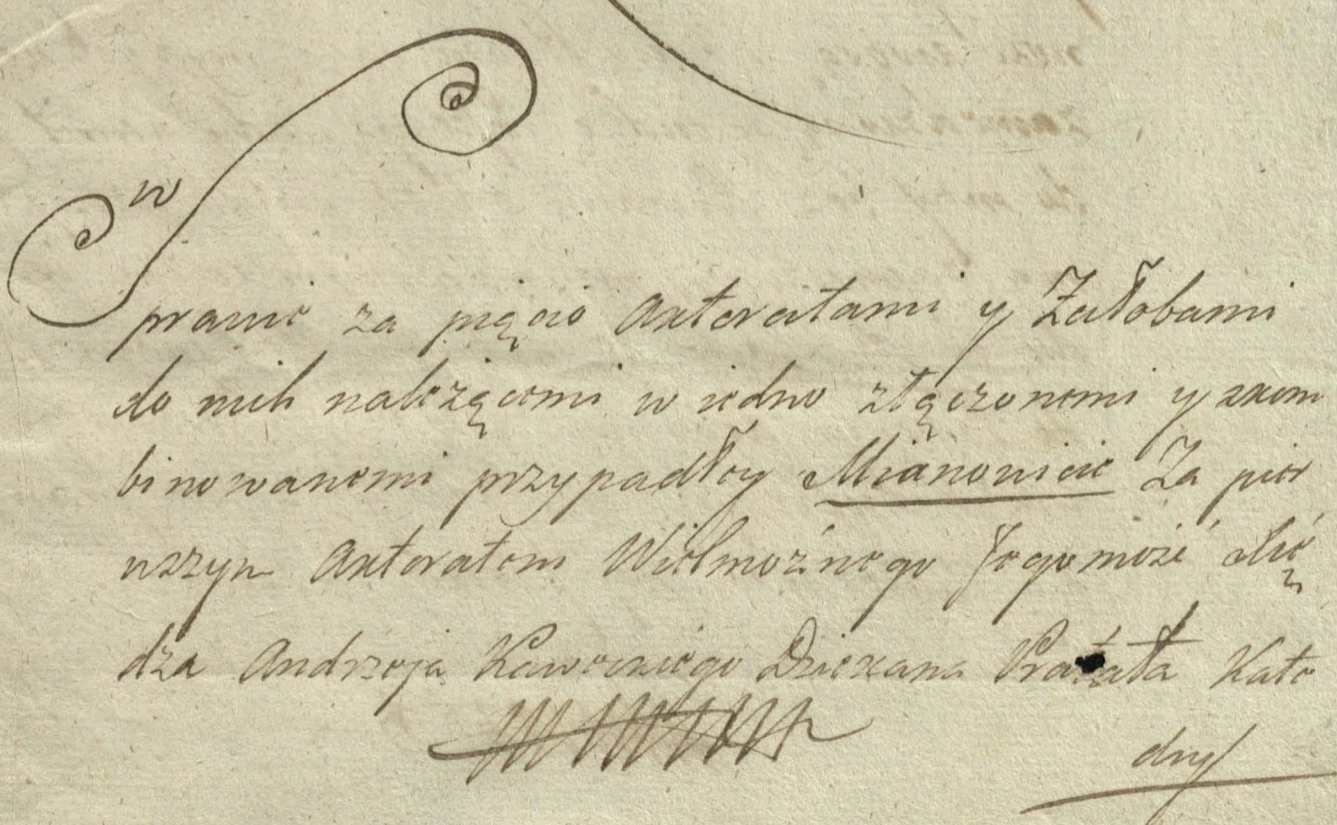 w
prawie za pięcio Aktoratami y Załobami
do nich należącemi w iedno złączonemi y skom
binowanemi przypadłey Mianowicie Za pier
wszym Aktoratem Wielmożnego Jegomość Xię
dza Andrzeja Dziekana Prałata Kate
dry